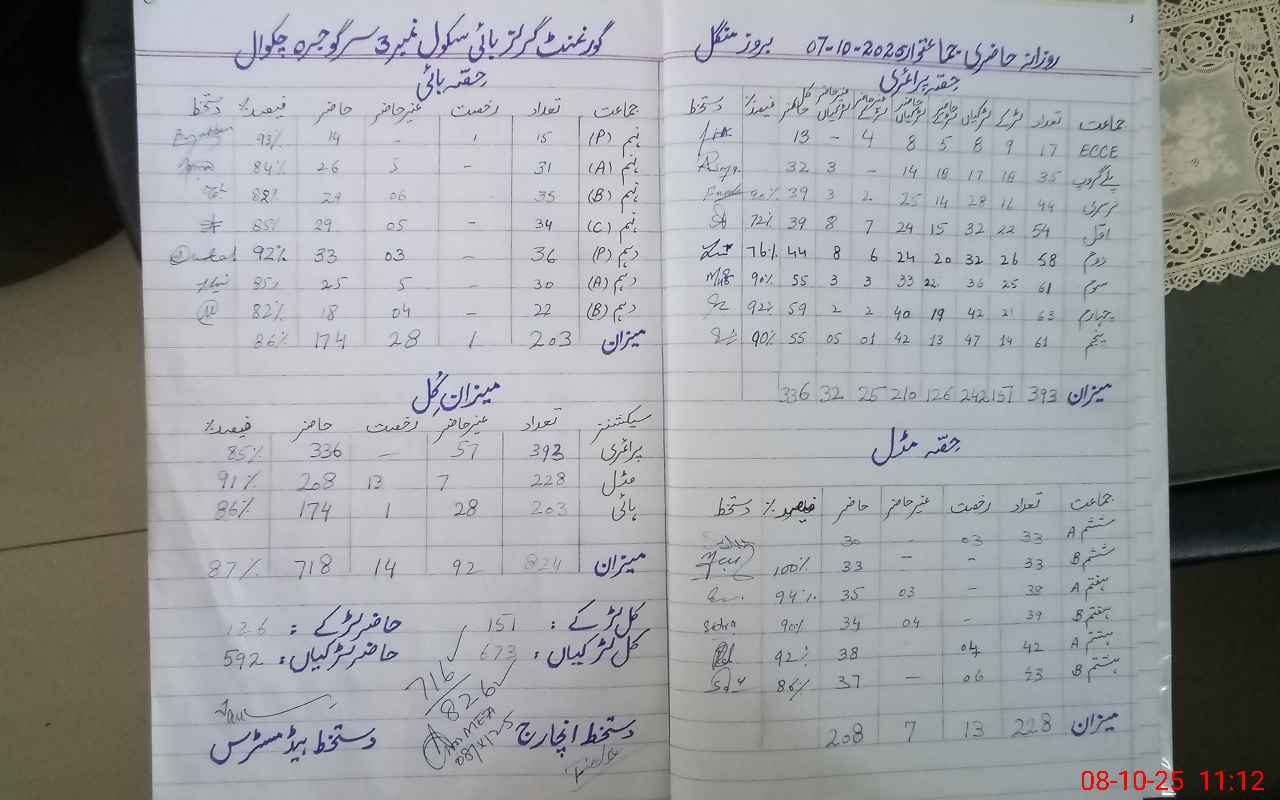 1
روزانہ حاضری جماعتوار 07-10-2025 بروز منگل
حصّہ پرائمری
جماعت تعداد لڑکے لڑکیاں حاضر لڑکے حاضر لڑکیاں غیر حاضر لڑکے غیر حاضر لڑکیاں کل حاضر فیصد% دستخط
ECCE 17 9 8 5 8 4 – 13
پلے گروپ 35 18 17 18 14 – 3 32
نرسری 44 16 28 14 25 2 3 39 90%
اوّل 54 22 32 15 24 7 8 39 72%
دوم 58 26 32 20 24 6 8 44 76%
سوم 61 25 36 22 33 3 3 55 90%
چہارم 63 21 42 19 40 2 2 59 92%
پنجم 61 14 47 13 42 01 05 55 90%
میزان 393 151 242 126 210 25 32 336
حصّہ مڈل
جماعت تعداد رخصت غیرحاضر حاضر فیصد% دستخط
ششم A 33 03 - 30
ششم B 33 - – 33 100%
ہفتم A 38 – 03 35 94%
ہفتم B 39 - 04 34 90%
ہشتم A 42 04 38 92%
ہشتم B 43 06 – 37 86%
میزان 228 13 7 208
گورنمنٹ گرلز ہائی سکول نمبر 3 سرگوجرہ چکوال
حصّہ ہائی
جماعت تعداد رخصت غیرحاضر حاضر فیصد% دستخط
نہم (P) 15 1 - 14 93%
نہم (A) 31 – 5 26 84%
نہم (B) 35 - 06 29 82%
نہم (C) 34 – 05 29 85%
دہم (P) 36 – 03 33 92%
دہم (A) 30 – 5 25 85%
دہم (B) 22 – 04 18 82%
میزان 203 1 28 174 86%
میزان کُل
سیکشنز تعداد غیرحاضر رخصت حاضر فیصد%
پرائمری 393 57 – 336 85%
مڈل 228 7 13 208 91%
ہائی 203 28 1 174 86%
میزان 824 92 14 718 87%
کل لڑکے : 151 حاضر لڑکے : 126
کل لڑکیاں : 673 حاضر لڑکیاں : 592
716
826
08/X/25
دستخط انچارج دستخط ہیڈ مسٹرس
08-10-25 11:12